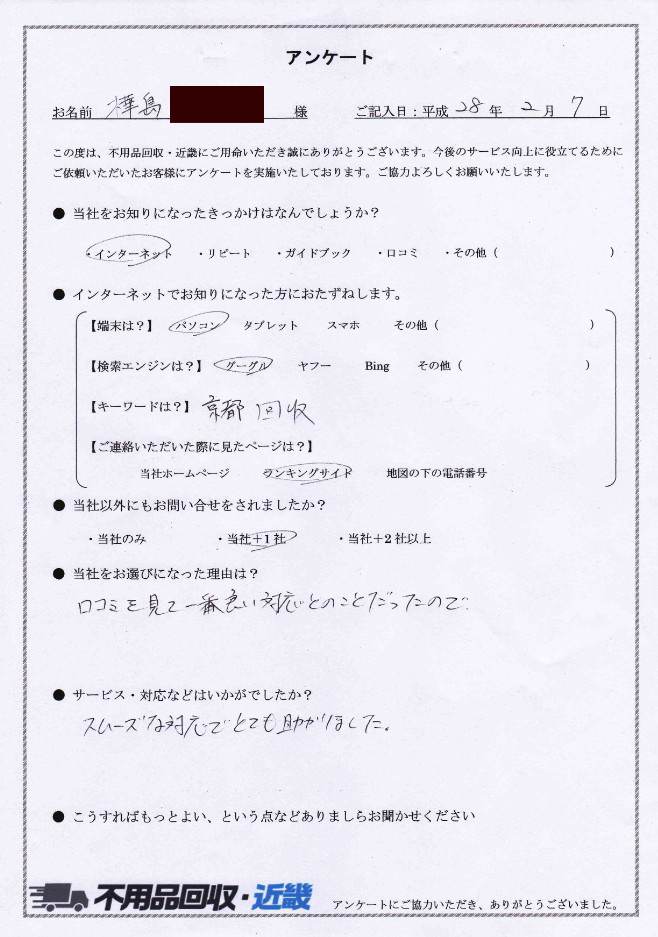 アンケート
お名前 樺島 様 ご記入日：平成 28 年 2 月 7 日
この度は、不用品回収・近畿にご用命いただき誠にありがとうございます。今後のサービス向上に役立てるために
ご依頼いただいたお客様にアンケートを実施いたしております。ご協力よろしくお願いいたします。
● 当社をお知りになったきっかけはなんでしょうか？
・インターネット ・リピート ・ガイドブック ・口コミ ・その他（ ）
● インターネットでお知りになった方におたずねします。
【端末は？】 パソコン タブレット スマホ その他（ ）
【検索エンジンは？】 グーグル ヤフー Bing その他（ ）
【キーワードは？】 京都 回収
【ご連絡いただいた際に見たページは？】
当社ホームページ ランキングサイト 地図の下の電話番号
● 当社以外にもお問い合せをされましたか？
・当社のみ ・当社＋1社 ・当社＋2社以上
● 当社をお選びになった理由は？
口コミを見て一番良い対応とのことだったので
● サービス・対応などはいかがでしたか？
スムーズな対応でとても助かりました。
● こうすればもっとよい、という点などありましらお聞かせください
不用品回収・近畿 アンケートにご協力いただき、ありがとうございました。